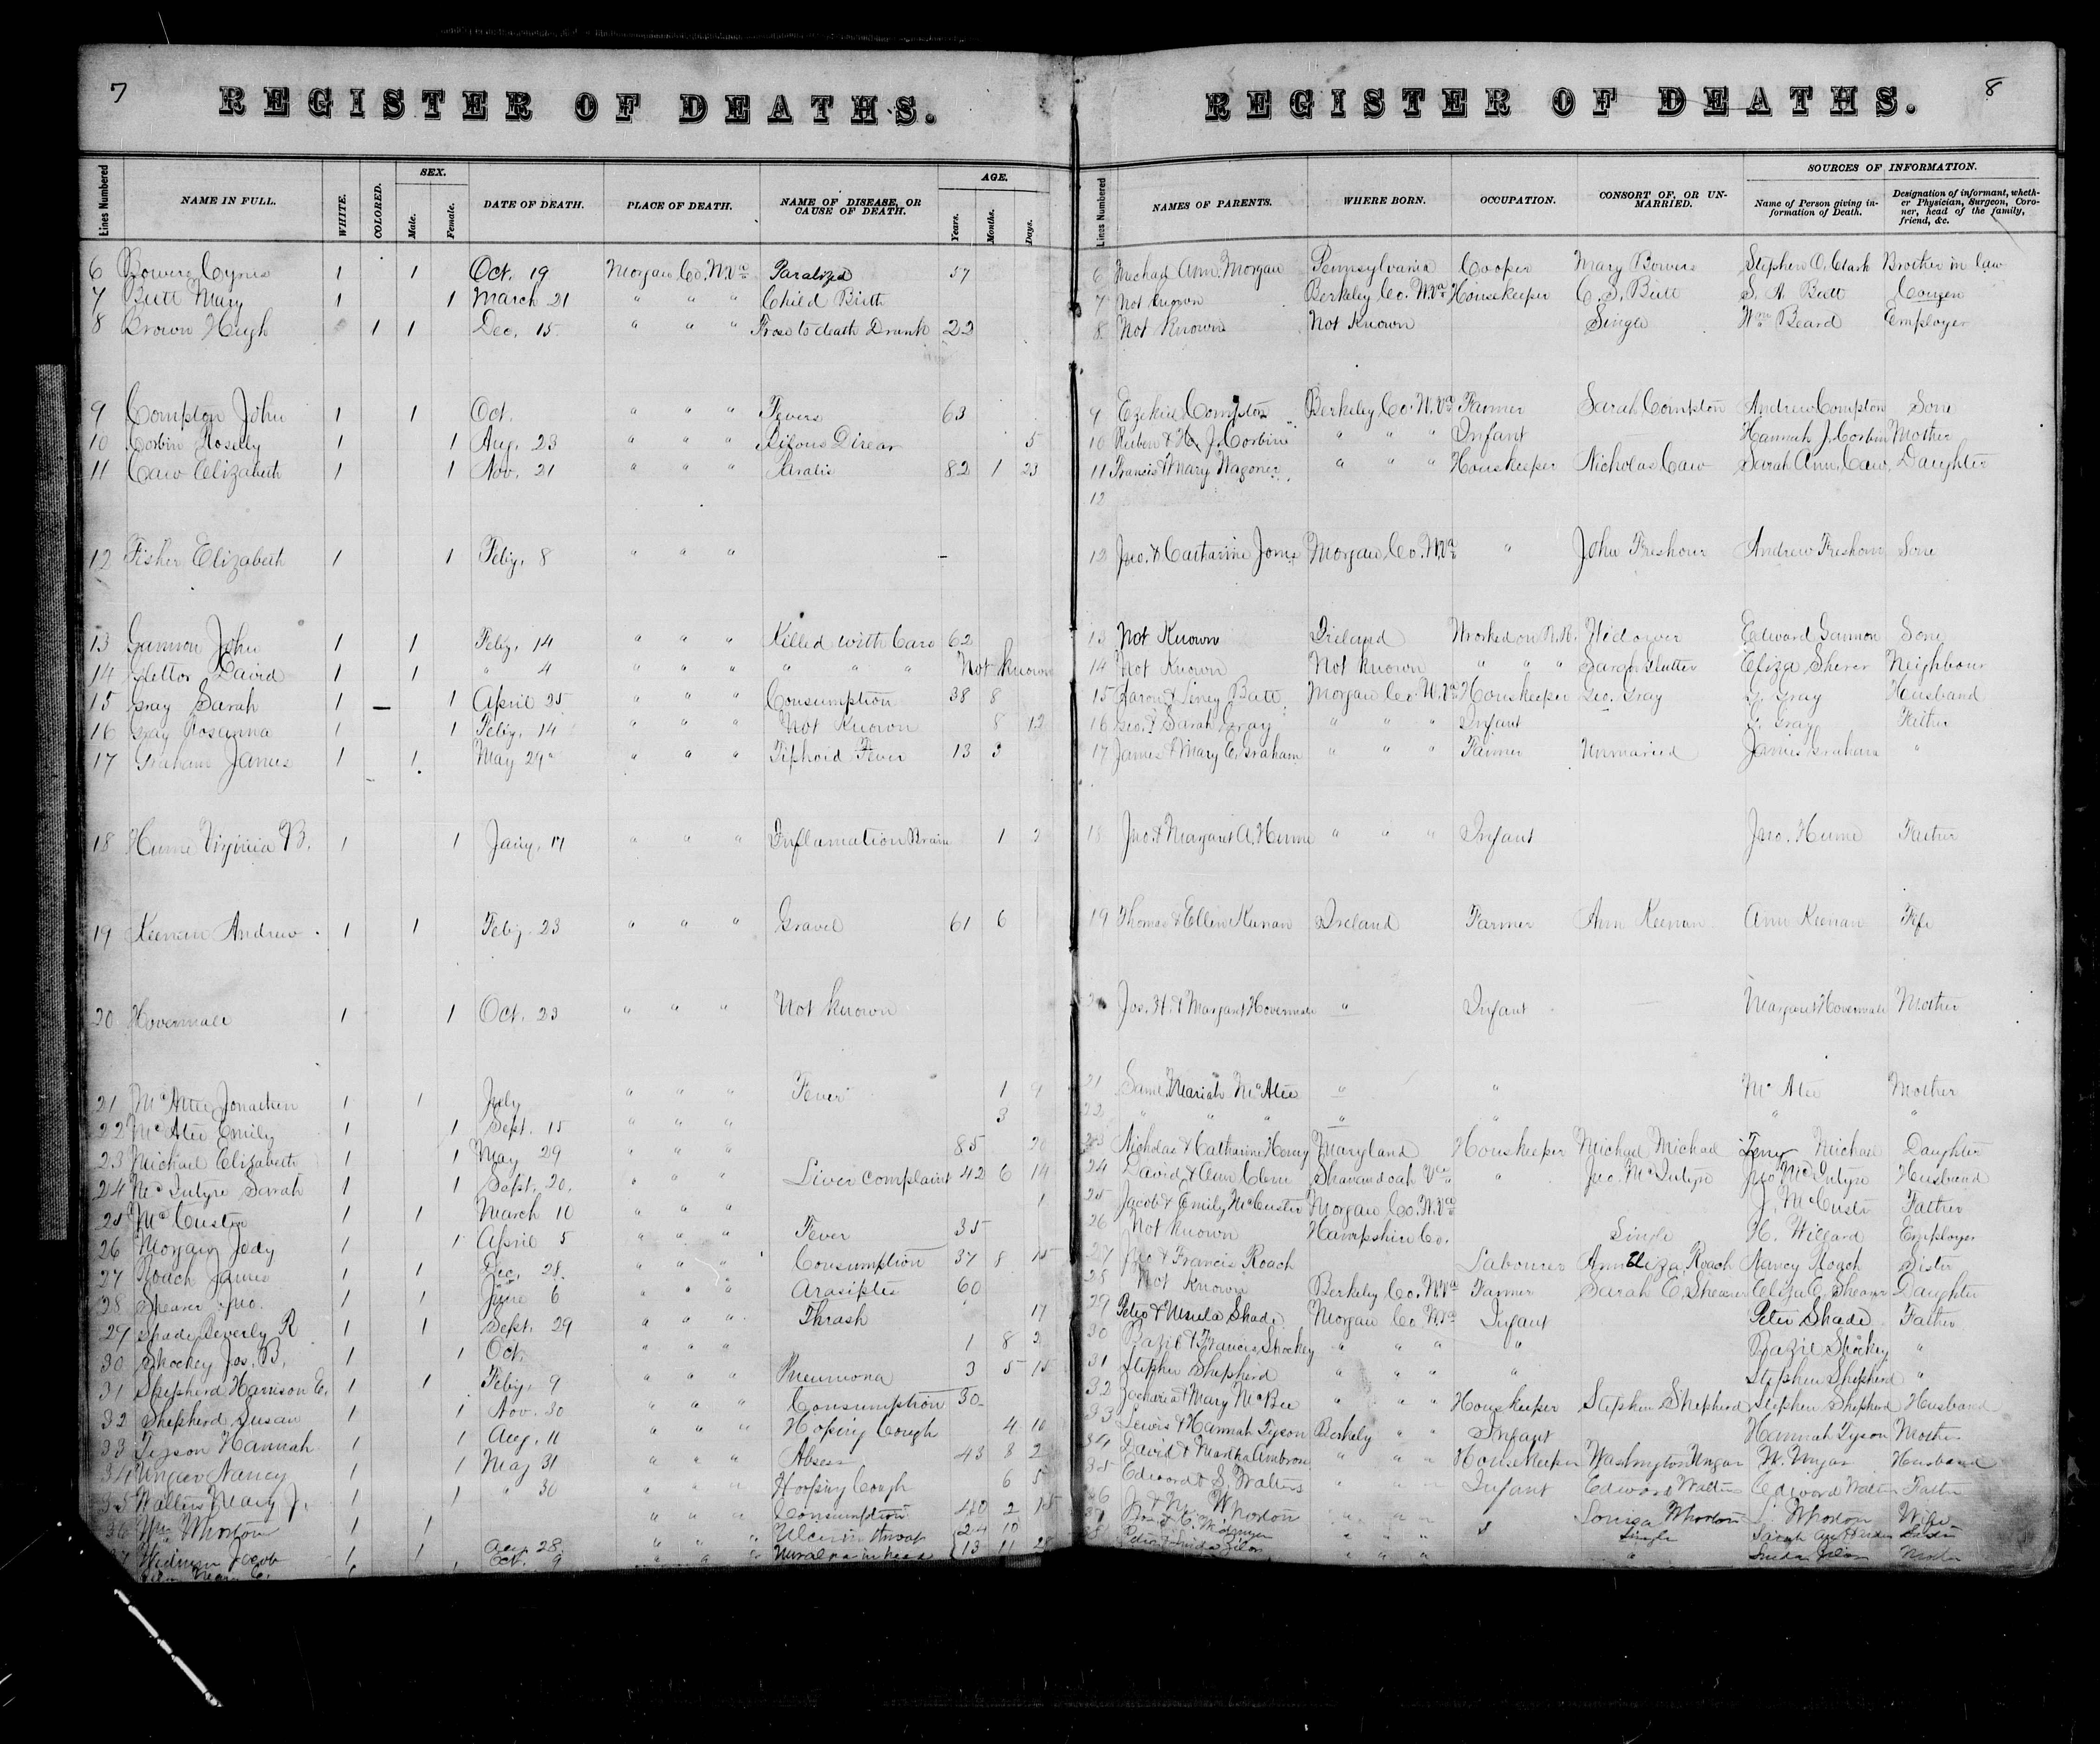 7
REGISTER OF DEATHS.
Lines Numbered NAME IN FULL. WHITE. COLORED. SEX. Male. Female. DATE OF DEATH. PLACE OF DEATH. NAME OF DISEASE, OR CAUSE OF DEATH. AGE. Years. Months. Days.
6 Bowers Cyrus 1 1 Oct. 19 Morgan Co. W.Va Paralized 57
7 Butt Mary 1 1 March 21 " " " Child Birth
8 Brown Hugh 1 1 Dec. 15 " " " Froze to death Drunk 22
9 Compton John 1 1 Oct. " " " Fevers 63
10 Corbin Roselly 1 1 Aug. 23 " " " 5
11 Caw Elizabeth 1 1 Nov. 21 " " " Paralis 82 1 23
12 Fisher Elizabeth 1 1 Feby. 8 " " "
13 Gannon John 1 1 Feby. 14 " " " Killed with Cars 62
14 David 1 1 " 4 " " " " " " Not Known
15 Gray Sarah 1 1 April 25 " " " Consumption 38 8
16 Gray Rosanna 1 1 Feby. 14 " " " Not Known 8 12
17 Graham James 1 1 May 29 " " " Tiphoid Fever 13 3
18 Hume Virginia B. 1 1 Jany. 17 " " " Inflamation Brain 1 2
19 Keenan Andrew 1 1 Feby. 23 " " " Gravel 61 6
20 Hovermale 1 1 Oct. 23 " " " Not Known
21 McAtee Jonathen 1 1 July " " " Fever 1 9
22 McAtee Emily 1 1 Sept. 15 " " " 3
23 Michael Elizabeth 1 1 May 29 " " " 85 20
24 McIntyre Sarah 1 1 Sept. 20. " " " Liver Complaint 42 6 14
25 McCuster 1 1 March 10 " " " 1
26 Morgan Jody 1 1 April 5 " " " Fever 35
27 Roach James 1 1 Dec. 28 " " " Consumption 37 8 15
28 Shearer Jno. 1 1 June 6 " " " Arasiples 60
29 Shade Beverly R 1 1 Sept. 29 " " " Thrash 17
30 Shockey Jas. B. 1 1 Oct. " " " 1 8 2
31 Shepherd Harrison E. 1 1 Feby. 9 " " " Pneumona 3 5 15
32 Shepherd Susan 1 1 Nov. 30 " " " Consumption 30
33 Tyson Hannah 1 1 Aug. 11 " " " Hoping Cough 4 10
34 Unger Nancy 1 1 May 31 " " " Absess 43 8 2
35 Walters Mary J. 1 1 " 30 " " " Hooping Cough 6 5
36 Wm Whorton 1 1 " " " Consumption 40 2 15
37 Widmyer Jacob 1 1 Aug. 28 " " Ulcer in throat 24 10
Mary E. 1 1 Oct. 9 " " " Nuralga in head 13 11
8
REGISTER OF DEATHS.
Lines Numbered NAMES OF PARENTS. WHERE BORN. OCCUPATION. CONSORT OF, OR UNMARRIED. SOURCES OF INFORMATION. Name of Person giving information of Death. Designation of informant, whether Physician, Surgeon, Coroner, head of the family, friend, &c.
6 Michael Ann Morgan Pennsylvania Cooper Mary Bowers Stephen O. Clark Brother in law
7 Not known Berkeley Co. W.Va Housekeeper C. S. Butt S. A. Butt Couzen
8 Not Known Not Known Single Wm Beard Employer
9 Ezekiel Compton Berkeley Co. W.Va Farmer Sarah Compton Andrew Compton Sone
10 Reuben & H. J. Corbin " " " Infant Hannah J. Corbin Mother
11 Francis & Mary Wagoner " " " Houskeeper Nicholas Caw Sarah Ann Caw Daughter
12
12 Jno. & Catharine Jones Morgan Co. W.Va " John Freshour Andrew Freshour Sone
13 Not Known Ireland Worked on R.R. Widower Edward Gannon Sone
14 Not Known Not Known " " " Eliza Sherer Neighbour
15 Aaron & Liney Butt Morgan Co W.Va Houskeeper Geo. Gray G. Gray Husband
16 Geo. & Sarah Gray " " " Infant G. Gray Father
17 James & Mary C. Graham " " " Farmer Unmaried James Graham "
18 Jno. & Margaret A. Hume " " " Infant Jno. Hume Father
19 Thomas & Ellen Keenan Ireland Farmer Ann Keenan Ann Keenan
20 Jos. H. & Margaret Hovermale " Infant Margaret Hovermale Mother
21 Saml. Mariah McAtee " " McAtee Mother
22 " " " " " " "
23 Nicholas & Catharine Henry Maryland Houskeeper Michael Michael Michael Daughter
24 David & Ann Clem Shanandoah Va " Jno. McIntyre Jno McIntyre Husband
25 Jacob & Emily McCuster Morgan Co. W.Va J. McCuster Father
26 Not Known Hampshire Co. Single H. Willard Employer
27 Jno & Francis Roach Labourer Ann Eliza Roach Nancy Roach Sister
28 Not Known Berkeley Co. W.Va Farmer Sarah E. Shearer Eliza C. Shearer Daughter
29 Peter & Ursula Shade Morgan Co W.Va Infant Peter Shade Father
30 Bazil & Francis Shockey " " " " Bazil Shockey "
31 Stephen Shepherd " " " " Stephen Shepherd "
32 Zacharia & Mary McBee " " " Houskeeper Stephen Shepherd Stephen Shepherd Husband
33 Lewis & Hannah Tyson Berkely " " Infant Hannah Tyson Mother
34 David & Martha Ambrose " " " Housekeeper Washington Unger W. Unger Husband
35 Edward & S. Walters " " " Infant Edward Walters Edward Walters Father
36 J. & N. Whorton " " " Louisa Whorton L. Whorton Wife
37 Widmyer " " " Single Sarah Ann
38 " " " "